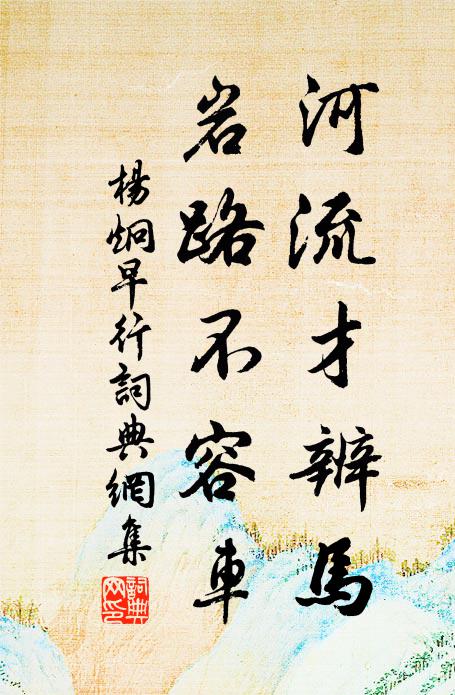 河流才辨馬
岩路不容車
楊炯早行詞典網集
詞典网印